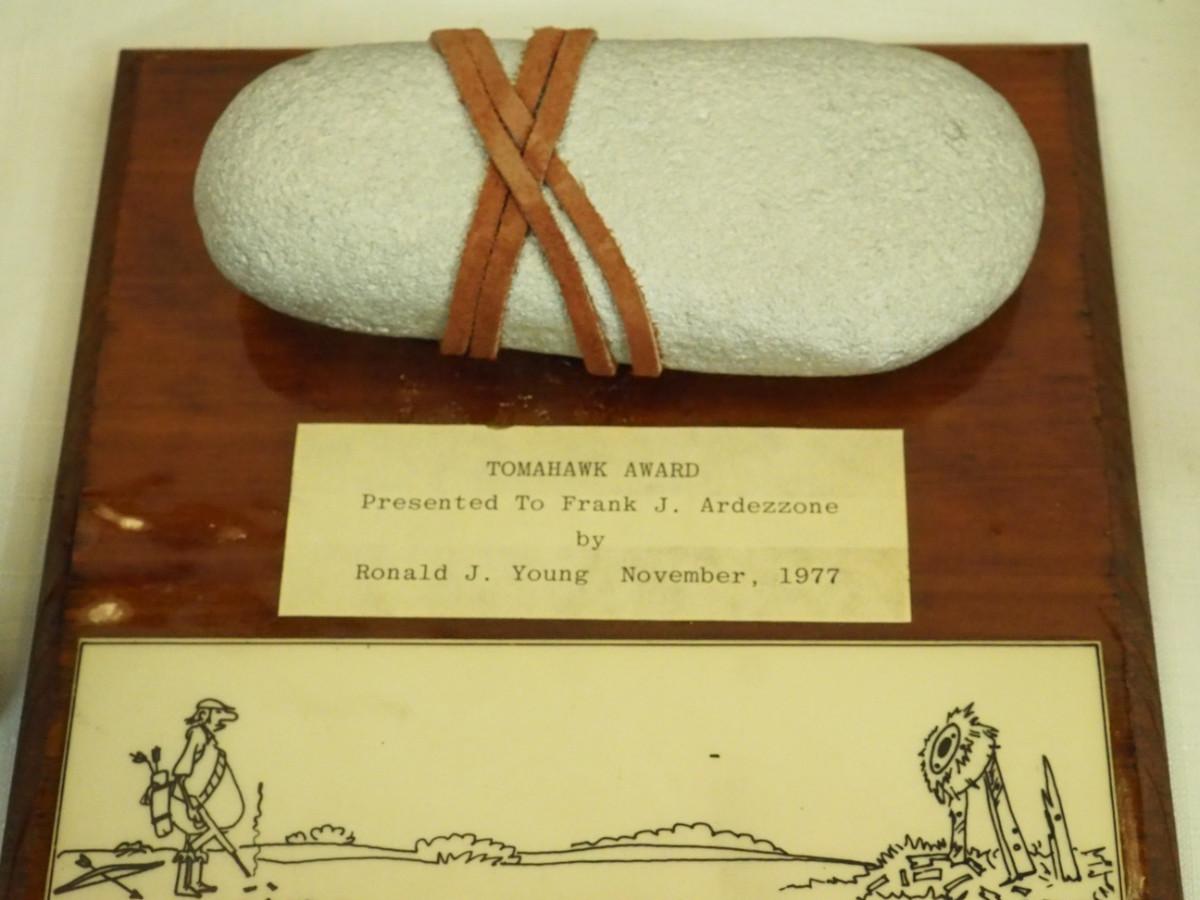 TOMAHAWK AWARD
Presented To Frank J. Ardezzone
by
Ronald J. Young November, 1977